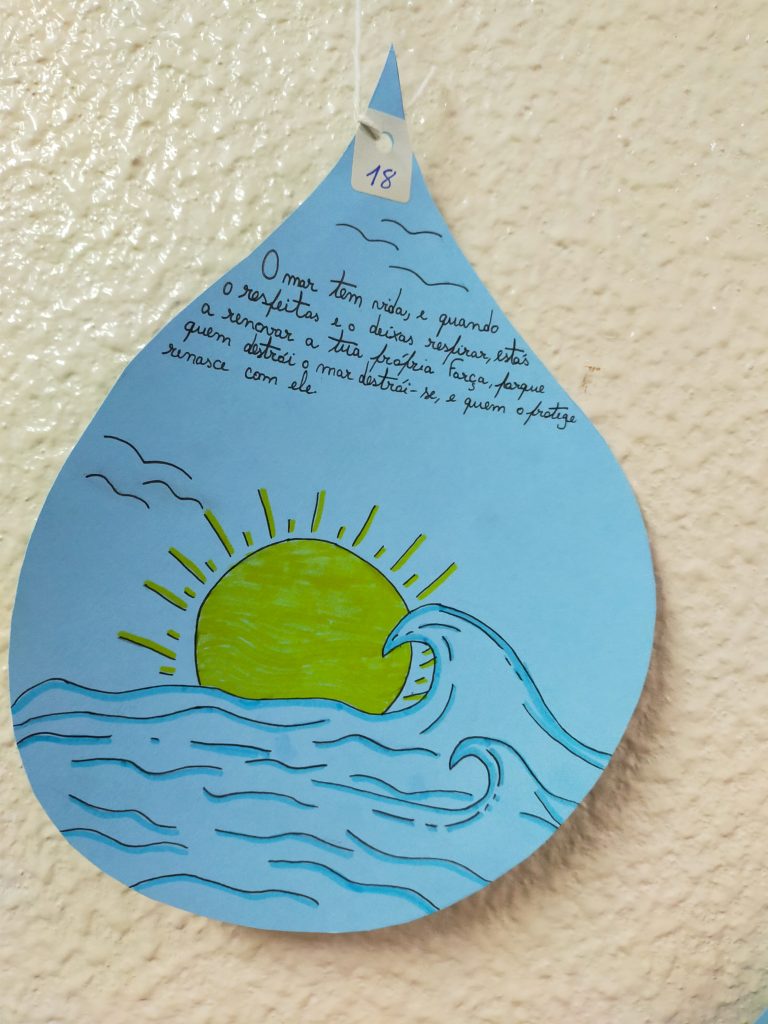 18
O mar tem vida, e quando
o respeitas e o deixas respirar, estás
a renovar a tua própria força, porque
quem destrói o mar destrói-se, e quem o protege
renasce com ele